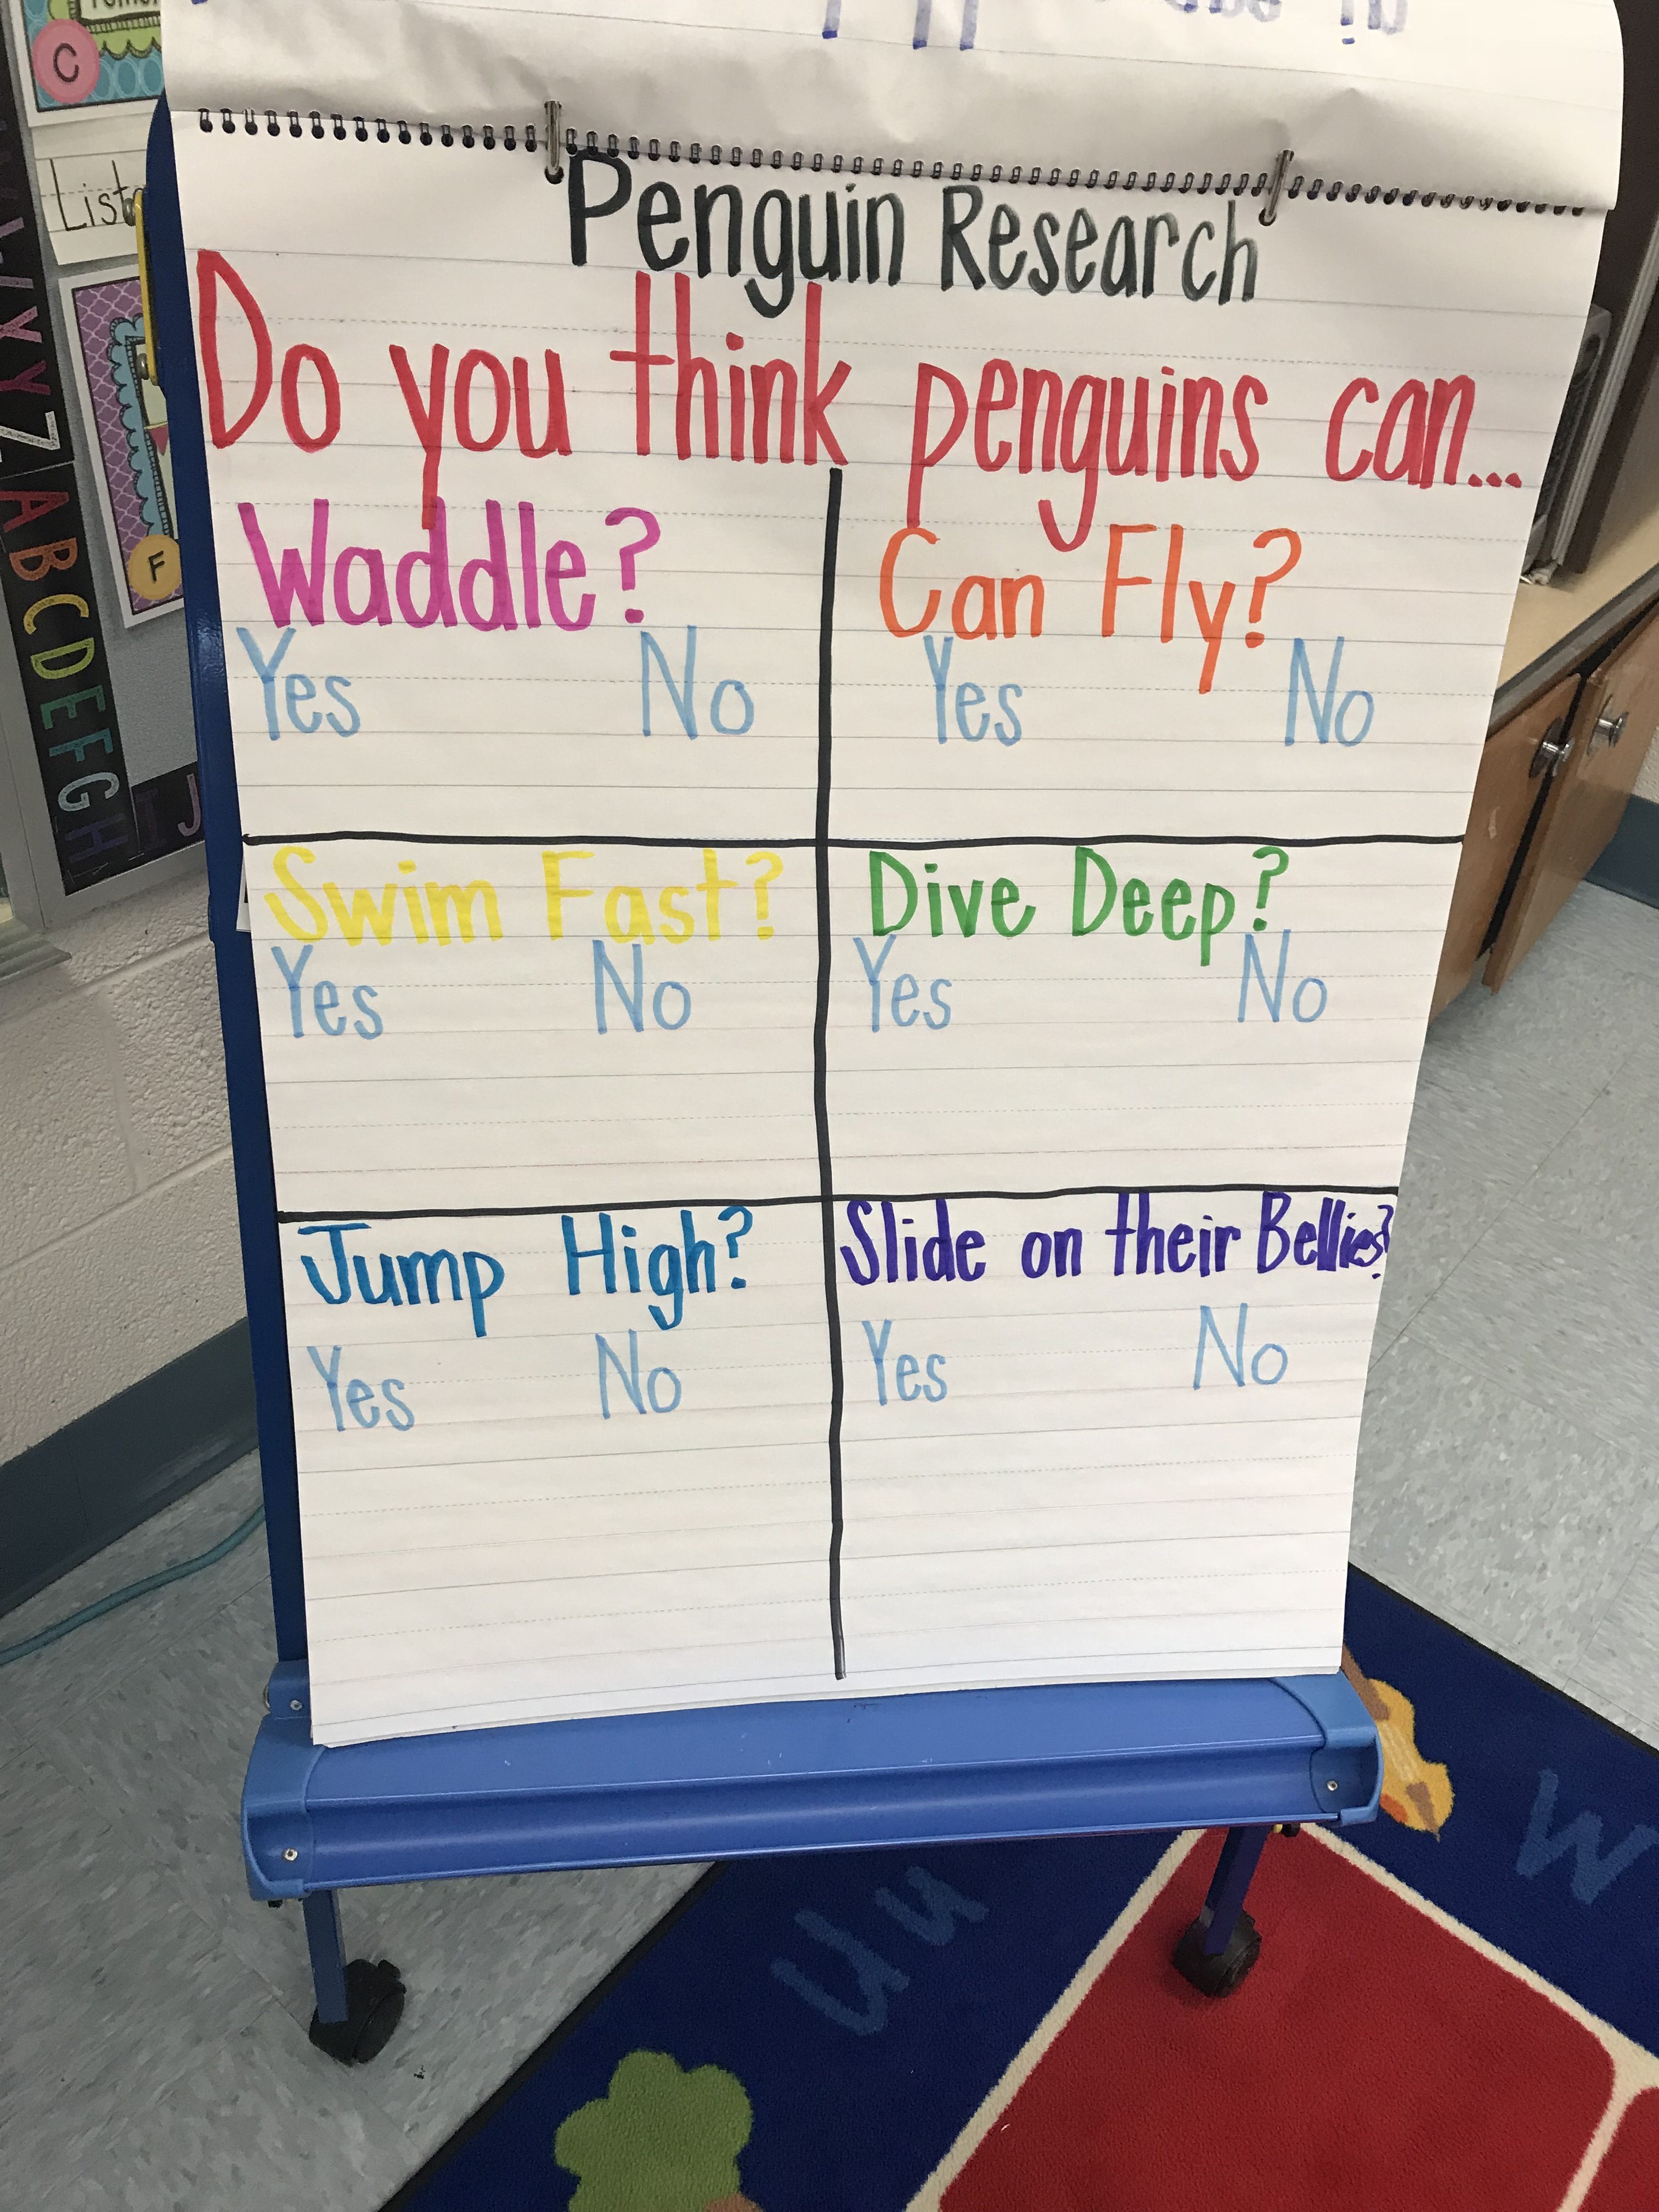 Penguin Research
Do you think penguins can...
Waddle?
Yes No
Can Fly?
Yes No
Swim Fast?
Yes No
Dive Deep?
Yes No
Jump High?
Yes No
Slide on their Bellies?
Yes No
C
List
F
W X Y Z A B C D E F G H I J
Uu
W